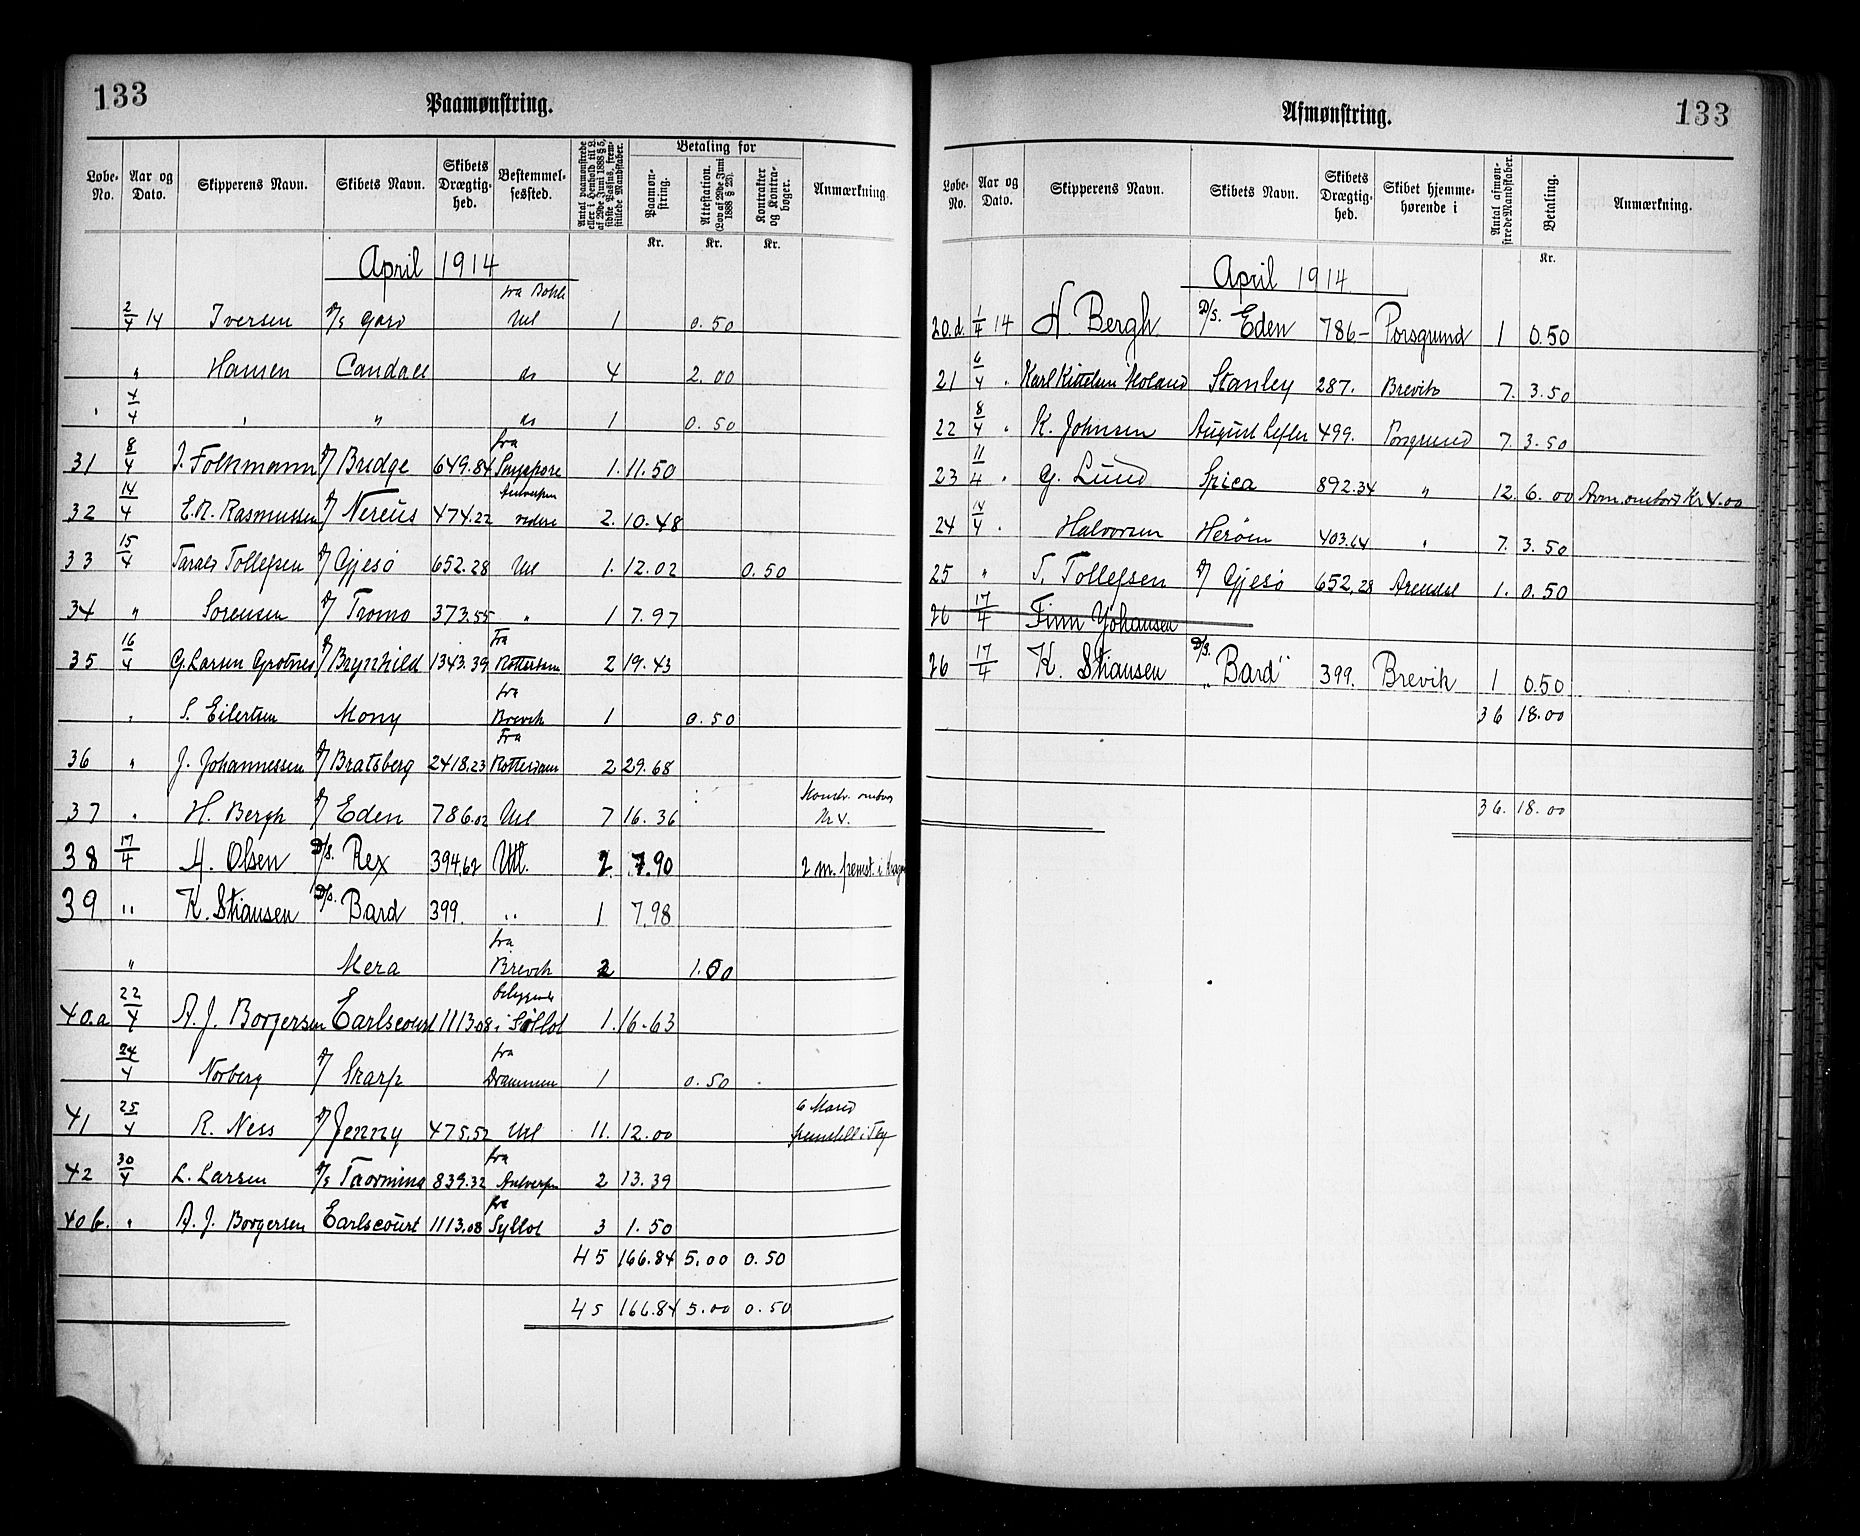 133
Paamønstring.
Løbe-No. | Aar og Dato. | Skipperens Navn. | Skibets Navn. | Skibets Drægtighed. | Bestemmelsessted. | Antal paamønstrede eller i Henhold til L. af 29de Juni 1888 § 5, sidste Passus, fremstillede Mandskaber. | Betaling for | Paamønstring. | Attestation. (Lov af 29de Juni 1888 § 23). | Kontrakter og Kontrabøger. | Anmærkning.
Kr. Kr. Kr.
April 1914
2/4 14 Iversen D/s Gard fra Utl 1 0.50
" Hansen Candace do 4 2.00
4/4 " " do 1 0.50
31 8/4 J. Folkmann D/ Bridge 649.84 fra 1. 11.50
32 14/4 E. R. Rasmussen D/ Nereus 474.22 Antwerpen 2. 10.48
33 15/4 Taralf Tollefsen D/ Gjesø 652.28 Utl 1. 12.02 0.50
34 " Sørensen D/ Tromø 373.55 " 1 7.97
35 16/4 G. Larsen Grotnes D/ Brynhild 1343.39 Fra Rotterdam 2 19.43
" S. Eilertsen Mony fra Brevik 1 0.50
36 " J. Johannessen D/ Bratsberg 2418.23 Fra Rotterdam 2 29.68
37 " H. Bergh D/ Eden 786.02 Utl 7 16.36 ombord Kr 4.
38 17/4 H. Olsen D/s. Rex 394,62 Utl. 2 7.90 2 m. fremst. i
39 " K. Stiansen D/s. Bard 399. " 1 7.98
" Mera fra Brevik 2 1.00
40.a 22/4 A. J. Borgersen Earlscourt 1113.08 i 1. 16.63
24/4 Norberg D/ Skarp fra Drammen 1 0.50
41 25/4 R. Ness D/ Jenny 475.52 Utl 11. 12.00 6 Mand
42 30/4 L. Larsen D/s Taormina 839.32 fra Antwerpen 2 13.39
40 b. " A. J. Borgersen Earlscourt 1113.08 fra 3 1.50
45 166.84 5.00 0.50
45 166.84 5.00 0.50
133
Afmønstring.
Løbe-No. | Aar og Dato. | Skipperens Navn. | Skibets Navn. | Skibets Drægtighed. | Skibet hjemmehørende i | Antal afmønstrede Mandskaber. | Betaling. | Anmærkning.
Kr.
April 1914
20.d. 1/4 14 H. Bergh D/s. Eden 786 - Porsgrund 1 0.50
21 6/4 " Karl Kittelsen Stanley 287. Brevik 7. 3.50
22 8/4 " K. Johnsen August Leffler 499. Porsgrund 7. 3.50
23 11/4 " G. Lund Spica 892.34 " 12. 6.00 ombord Kr 4.00
24 14/4 " Halvorsen Herøen 403.64 " 7. 3.50
25 " T. Tollefsen D/ Gjesø 652,28 Arendal 1. 0.50
26 17/4 Finn Johansen
26 17/4 K. Stiansen D/s. "Bard" 399. Brevik 1 0.50
36 18.00
36. 18.00